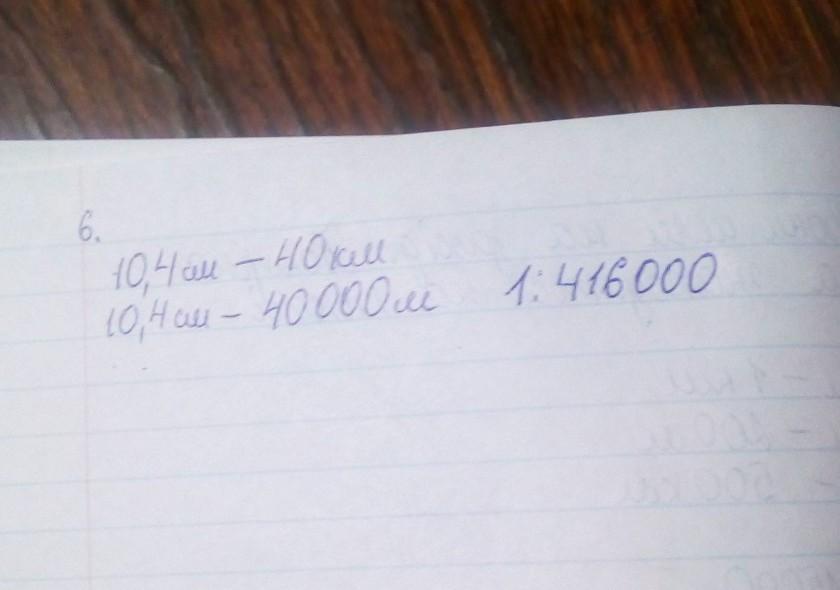 6.
10,4см – 40км
10,4см – 40000м 1:416000